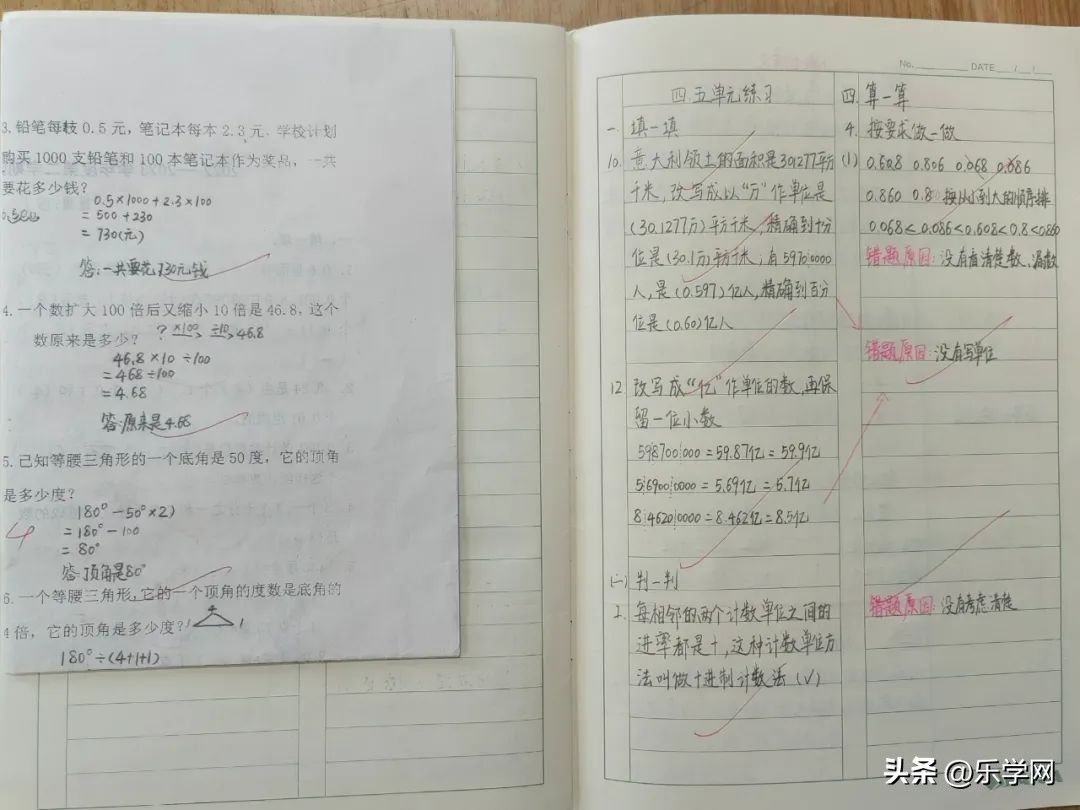 3.铅笔每枝0.5元，笔记本每本2.3元、学校计划
购买1000支铅笔和100本笔记本作为奖品，一共
要花多少钱？
0.5×1000+2.3×100
=500+230
=730(元)
答:一共要花730元钱
4.一个数扩大100倍后又缩小10倍是46.8，这个
数原来是多少？ ? ×100 ÷10 46.8
46.8×10÷100
=468÷100
=4.68
答:原来是4.68
5.已知等腰三角形的一个底角是50度，它的顶角
是多少度？
180°-50°×2)
=180°-100
=80°
答:顶角是80°
4
6.一个等腰三角形，它的一个顶角的度数是底角的
4倍，它的顶角是多少度？
180°÷(4+1+1)
No. DATE / /
四.五单元练习
一.填一填
10.意大利领土的面积是301277平方
千米，改写成以“万”作单位是
(30.1277万)平方千米，精确到十分
位是(30.1万)平方千米；有59700000
人，是(0.597)亿人，精确到百分
位是(0.60)亿人
12.改写成“亿”作单位的数，再保
留一位小数
598700000=59.87亿=59.9亿
569000000=5.69亿=5.7亿
846200000=8.462亿=8.5亿
(二)判一判
2.每相邻的两个计数单位之间的
进率都是十，这种计数单位方
法叫做十进制计数法（√）
四.算一算
4.按要求做一做
(1) 0.608 0.806 0.068 0.086
0.860 0.8 按从小到大的顺序排
0.068<0.086<0.608<0.8<0.860
错题原因:没有看清楚数、漏数
错题原因:没有写单位
错题原因:没有考虑清楚
头条 @乐学网